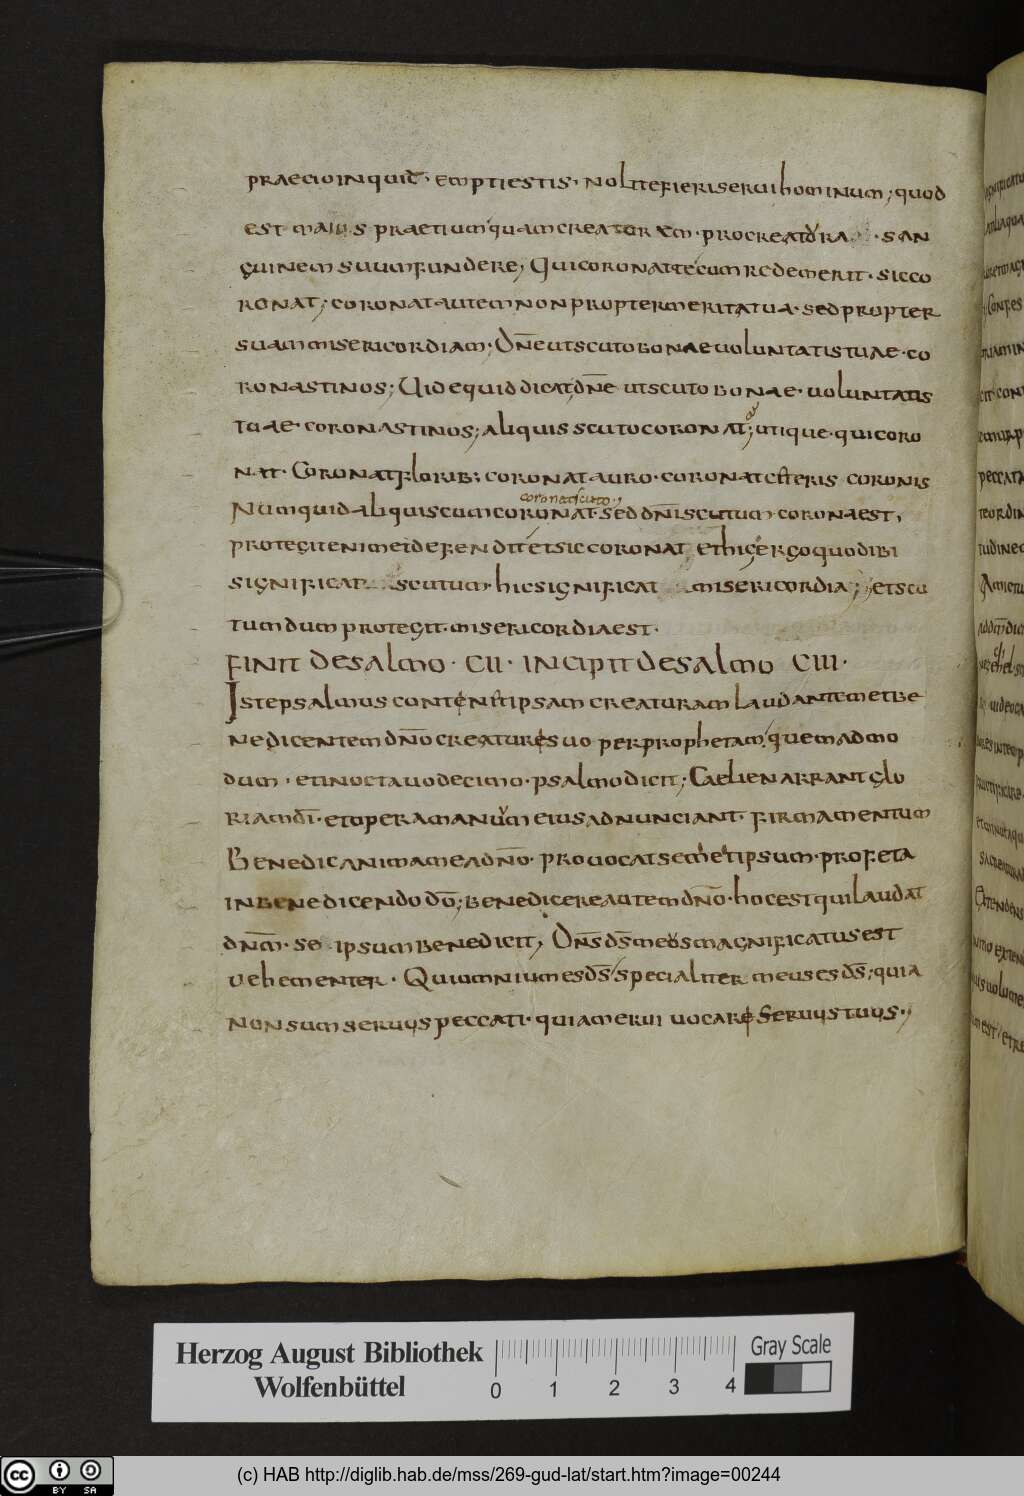 praecio inquid · empti estis · nolite fieri servi hominum ; quod
est maius praetium quam creatorem · procreatura · san
guinem suum fundere ; Qui coronat te cum redemerit · sic co
ronat ; coronat autem non propter merita tua · sed propter
suam misericordiam ; Dn̄e ut scuto bonae voluntatis tuae · co
ronasti nos ; Vide quid dicat dn̄e ut scuto bonae · voluntatis
tuae · coronasti nos ; aliquis scuto coronat ; utique · qui coro
nat · Coronat florib; coronat auro · coronat ceteris coronis
coronat scuto
Numquid aliquis cum coronat · sed dn̄i scutum · corona est ,
protegit enim et defendit et sic coronat et hic ergo quod ibi
significat scutum · hic significat misericordia ; et scu
tum dum protegit misericordia est ·
FINIT DE SALMO · CII · INCIPIT DE SALMO CIII ·
Iste psalmus contenet ipsam creaturam laudantem et be
nedicentem dn̄o creature suo per prophetam quemadmo
dum · et in octavo decimo · psalmo dicit ; Caeli enarrant glo
riam dī · et opera manuum eius adnunciant · firmamentum
Benedic anima mea dn̄o · provocat semet ipsum · profeta
in benedicendo dō ; benedicere autem dn̄o · hoc est qui laudat
dn̄m · se ipsum benedicit , Dn̄s ds̄ meus magnificatus est
vehementer · Qui omnium es ds̄ specialiter meus es ds̄ ; quia
non sum servus peccati · quia merui vocare servus tuus ·
Herzog August Bibliothek
Wolfenbüttel
0 1 2 3 4
Gray Scale
cc BY SA
(c) HAB http://diglib.hab.de/mss/269-gud-lat/start.htm?image=00244